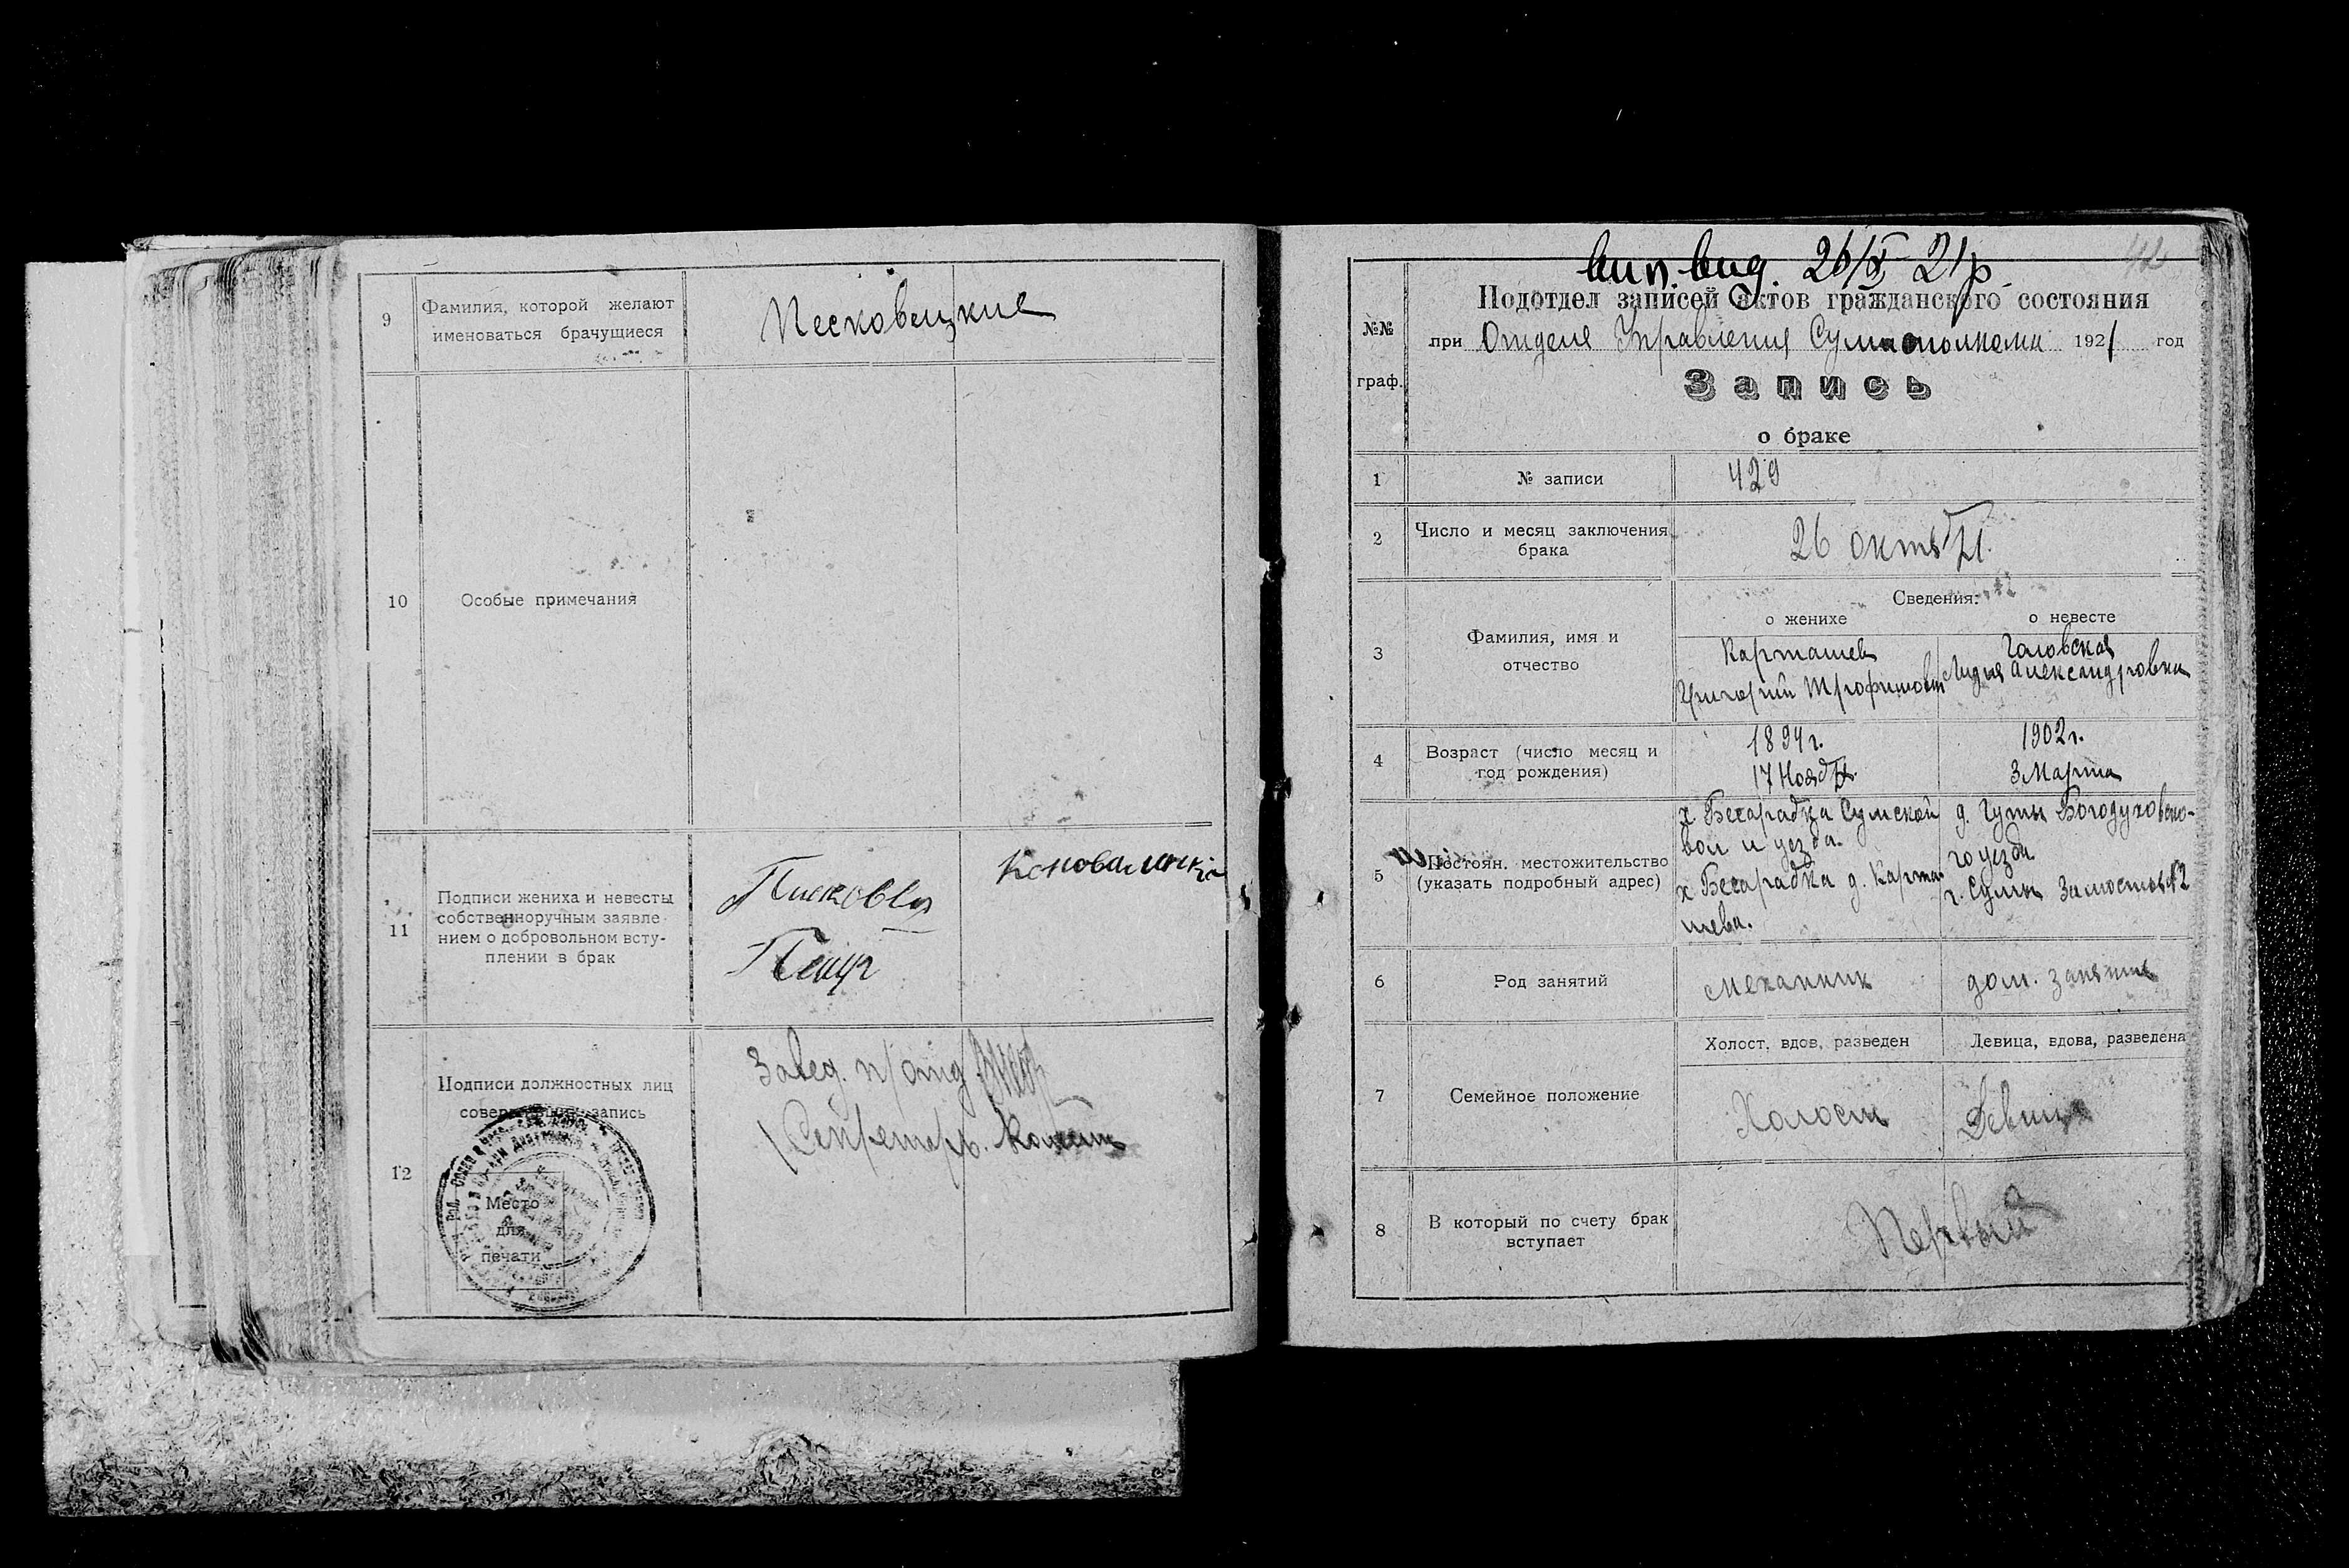 9
Фамилия, которой желают
именоваться брачущиеся
Песковецкие
10
Особые примечания
11
Подписи жениха и невесты
собственноручным заявле-
нием о добровольном всту-
плении в брак
12
Подписи должностных лиц
запись
Завед. п/отд
Секретарь.
Место
для
печати
вид. 26/X 21 р
№№
граф.
Подотдел записей актов гражданского состояния
при Отделе Управления 1921 год
Запись
о браке
1
№ записи
429
2
Число и месяц заключения
брака
26 октяб 21.
Сведения:
о женихе
о невесте
3
Фамилия, имя и
отчество
Карташев
Григорий Трофимович
Гаговская
Лидия Александровна
4
Возраст (число месяц и
год рождения)
1894 г.
17 Нояб.
1902 г.
3 Марта
5
Постоян. местожительство
(указать подробный адрес)
х Бесарабка Сумской
вол и уезда.
х Бесарабка д. Карта
шева.
д. Гуты Богодуховско-
го уезда
г. Сумы
6
Род занятий
механик
дом. занятие
7
Семейное положение
Холост, вдов, разведен
Девица, вдова, разведена
Холост
Девица
8
В который по счету брак
вступает
Первый